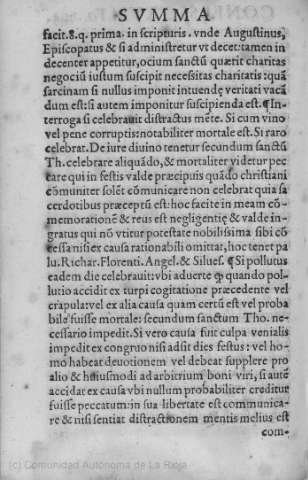 SVMMA
facit. 8. q. prima. in scripturis. vnde Augustinus,
Episcopatus & si administretur vt decet: tamen in
decenter appetitur, ocium sanctũ quærit charitas
negociũ iustum suscipit necessitas charitatis: quã
sarcinam si nullus imponit intuendę veritati vacã
dum est: si autem imponitur suscipienda est. ¶ In-
terroga si celebrauit distractus mẽte. Si cum vino
vel pene corruptis: notabiliter mortale est. Si raro
celebrat. De iure diuino tenetur secundum sanctũ
Th. celebrare aliquãdo, & mortaliter videtur pec
care qui in festis valde præcipuis quãdo christiani
cõmuniter solẽt cõmunicare non celebrat quia sa
cerdotibus præceptũ est: hoc facite in meam cõ-
memorationẽ & reus est negligentię & valde in-
gratus qui nõ vtitur potestate nobilissima sibi cõ
cessa nisi ex causa rationabili omittat, hoc tenet pa
lu. Richar. Florenti. Angel. & Silues. ¶ Si pollutus
eadem die celebrauit: vbi aduerte ꝙ quando pol-
lutio accidit ex turpi cogitatione præcedente vel
crapula: vel ex alia causa quam certũ est vel proba
bile fuisse mortale: secundum sanctum Tho. ne-
cessario impedit. Si vero causa fuit culpa venialis
impedit ex congruo nisi adsit dies festus: vel ho-
mo habeat deuotionem vel debeat supplere pro
alio & huiusmodi ad arbitrium boni viri, si autẽ
accidat ex causa vbi nullum probabiliter creditur
fuisse peccatum: in sua libertate est communica-
re & nisi sentiat distractionem mentis melius est
com-
(c) Comunidad Autónoma de La Rioja